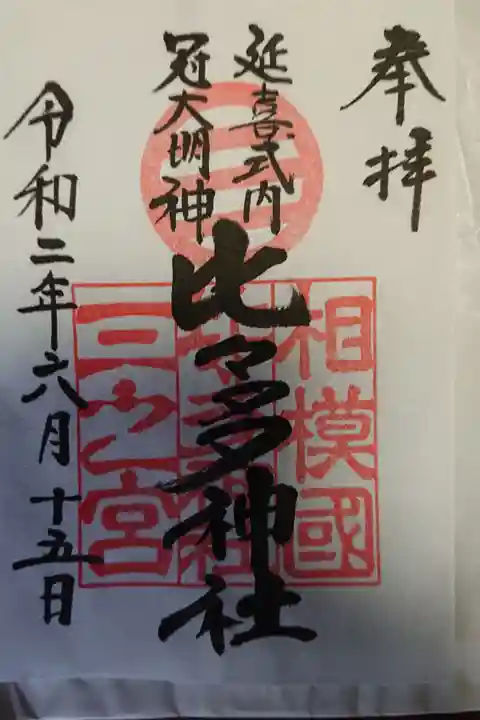 奉拝
延喜式内
冠大明神
比々多神社
令和二年六月十五日
三
相模國
三之宮